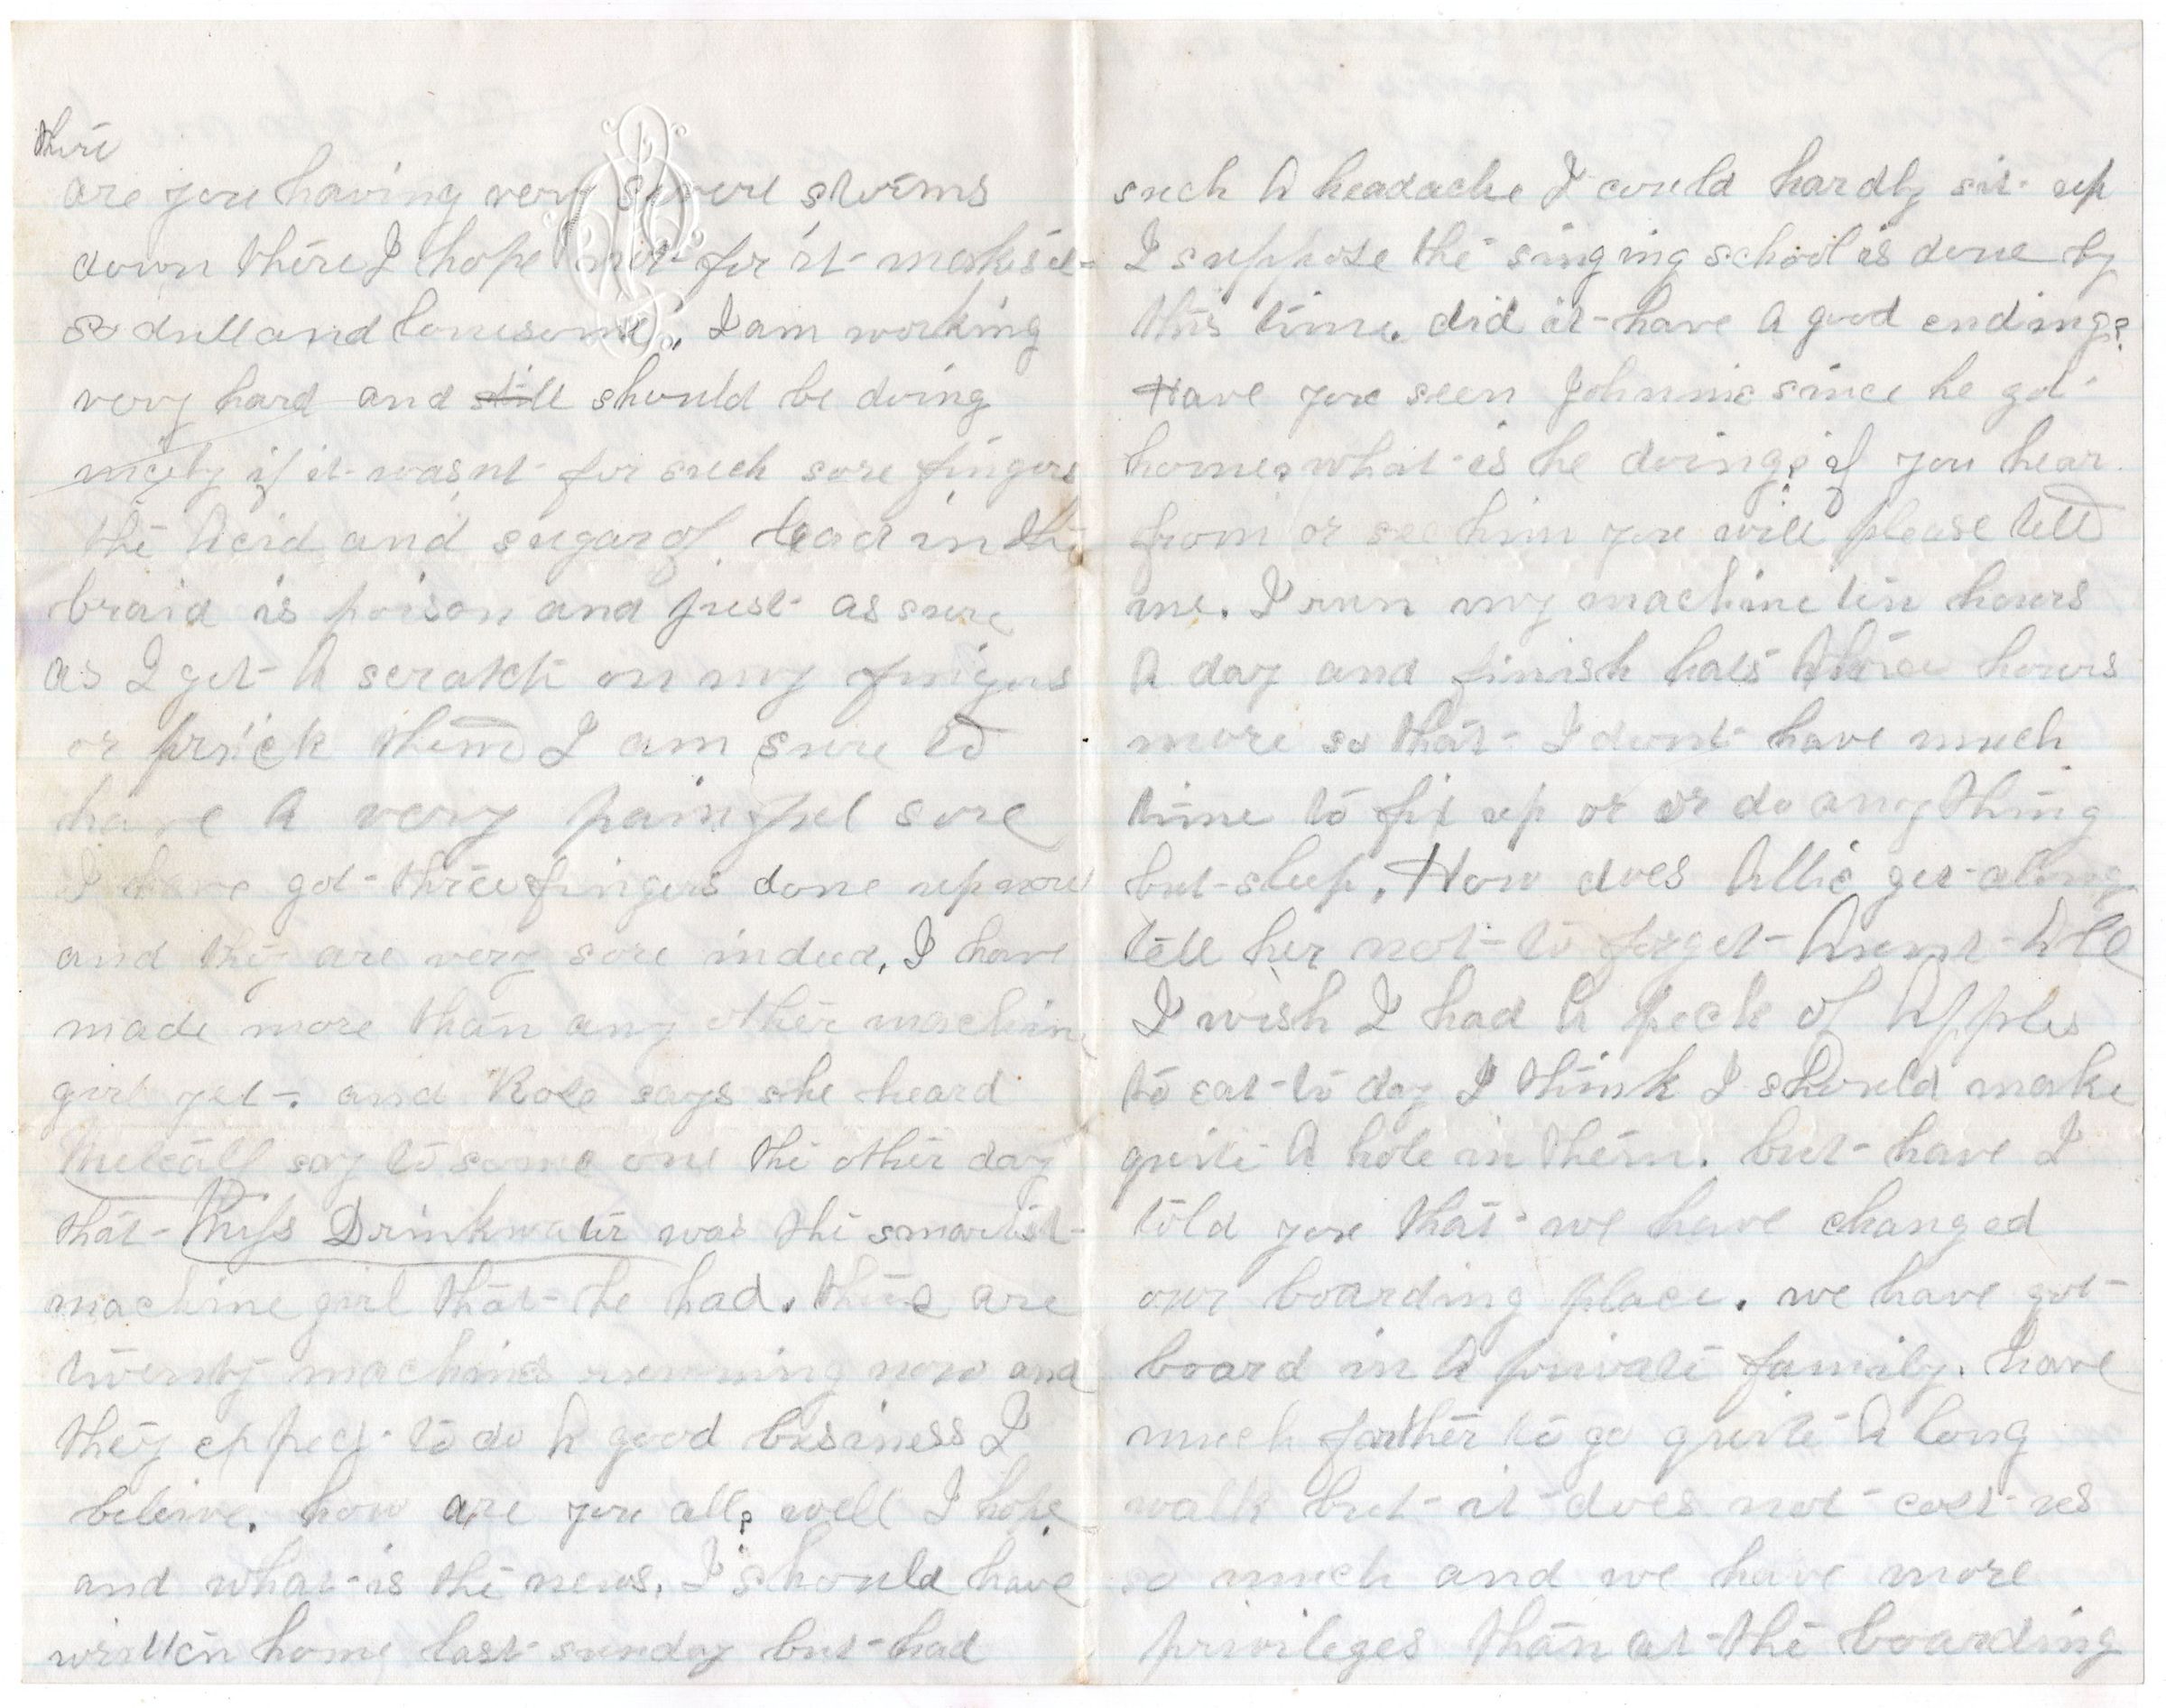 there
are you having very severe storms
down there I hope not for it makes it
so dull and lonesome. I am working
very hard and still should be doing
nicely if it wasnt for such sore fingers
the Acid and sugar of lead in the
braid is poison and just as sure
as I get A scratch on my fingers
or prick them I am sure to
have A very painful sore
I have got three fingers done up now
and they are very sore indeed, I have
made more than any other machine
girl yet. and Rose says she heard
Metcalf say to some one the other day
that Miss Drinkwater was the smartest
machine girl that he had. there are
twenty machines running now and
they expect to do A good business I
beleive. how are you all? well I hope
and what is the news. I should have
written home last sunday but had
such A headache I could hardly sit up
I suppose the singing school is done by
this time. did it have A good ending?
Have you seen Johnnie since he got
home? what is he doing? if you hear
from or see him you will please tell
me. I run my machine ten hours
A day and finish hats three hours
more so that I dont have much
time to fix up or or do any thing
but sleep. How does Allie get along
tell her not to forget Aunt
I wish I had A peck of Apples
to eat to day I think I should make
quite A hole in them. but have I
told you that we have changed
our boarding place. we have got
board in A private family. have
much farther to go quite A long
walk but it does not cost us
so much and we have more
privileges than at the boarding